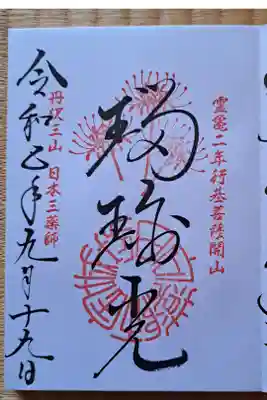 霊亀二年行基菩薩開山
瑠璃光
丹沢三山 日本三薬師
令和 年九月十九日